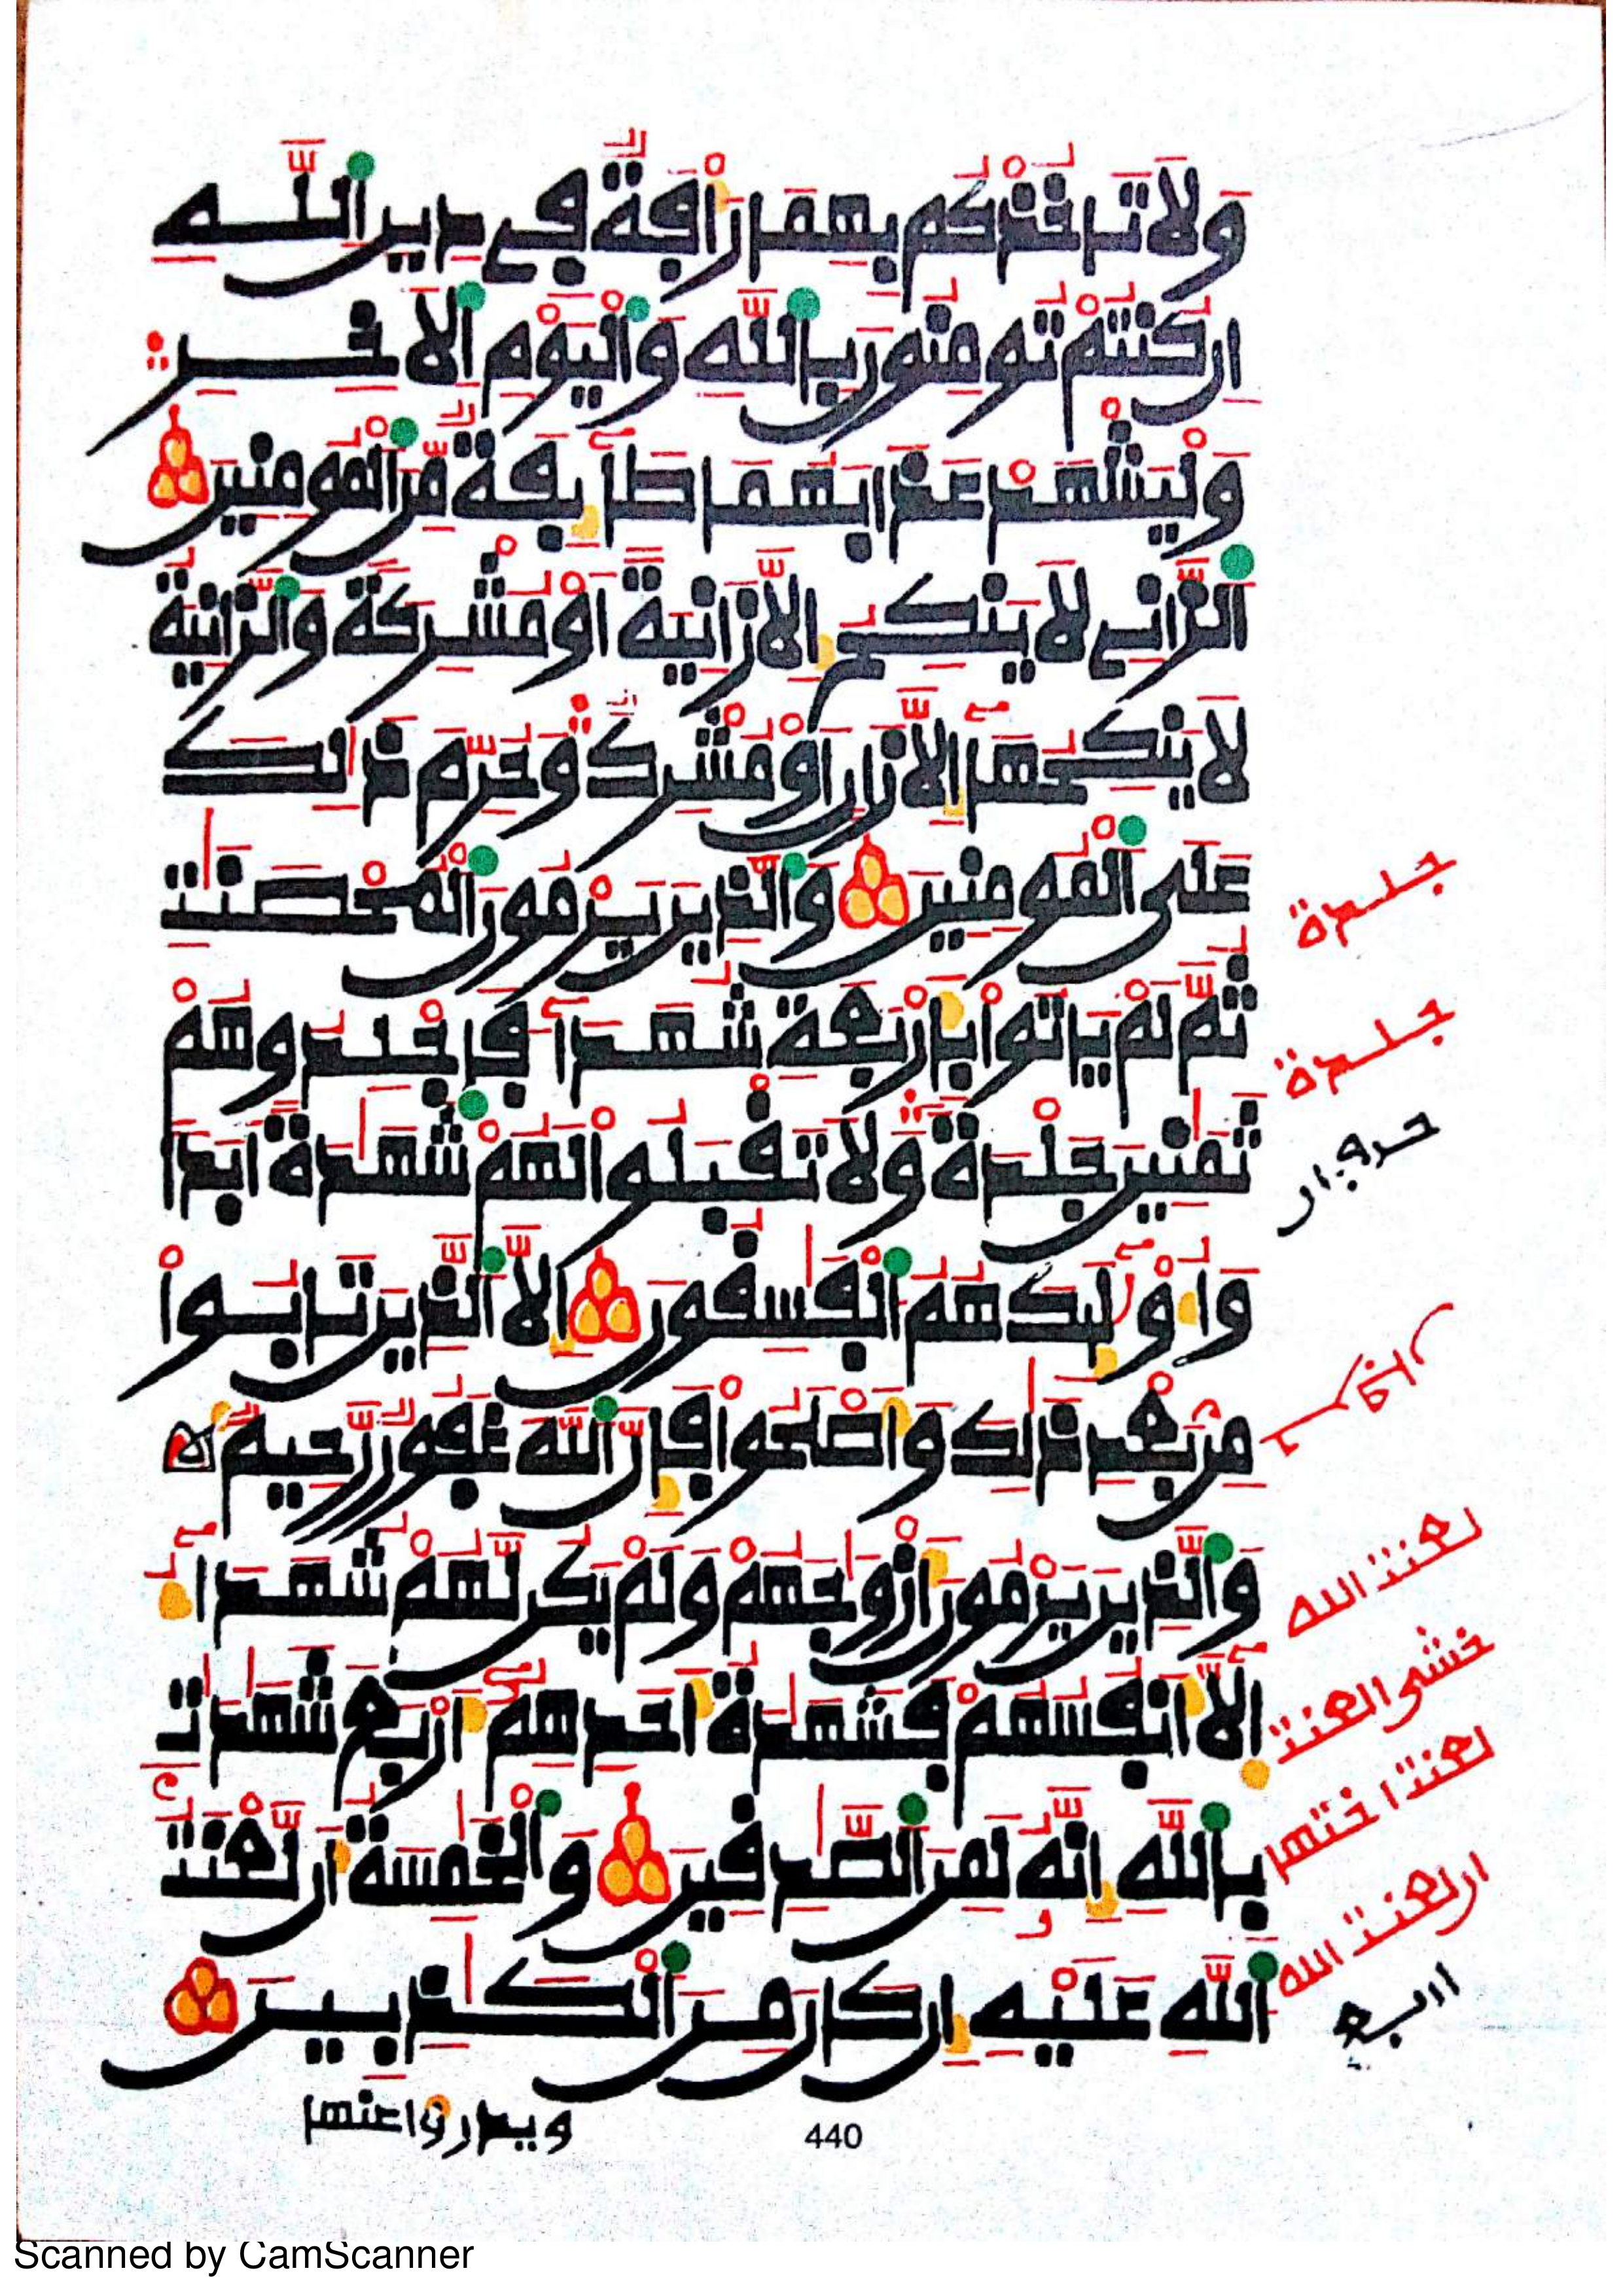 وَلَا تَاخُذْكُم بِهِمَا رَأْفَةٌ فِي دِينِ اِللَّهِ
إِن كُنتُمْ تُومِنُونَ بِاللَّهِ وَالْيَوْمِ اِلَاخِرِ
وَلْيَشْهَدْ عَذَابَهُمَا طَآئِفَةٌ مِّنَ اَلْمُومِنِينَ
اَلزَّانِي لَا يَنكِحُ إِلَّا زَانِيَةً أَوْ مُشْرِكَةً وَالزَّانِيَةُ
لَا يَنكِحُهَآ إِلَّا زَانٍ أَوْ مُشْرِكٌ وَحُرِّمَ ذَٰلِكَ
عَلَى اَلْمُومِنِينَ وَالَّذِينَ يَرْمُونَ اَلْمُحْصَنَٰتِ
ثُمَّ لَمْ يَاتُوا بِأَرْبَعَةِ شُهَدَآءَ فَاجْلِدُوهُمْ
ثَمَٰنِينَ جَلْدَةً وَلَا تَقْبَلُوا لَهُمْ شَهَٰدَةً اَبَدًا
وَأُوْلَٰٓئِكَ هُمُ اُلْفَٰسِقُونَ إِلَّا اَلَّذِينَ تَابُوا
مِنۢ بَعْدِ ذَٰلِكَ وَأَصْلَحُوا فَإِنَّ اَللَّهَ غَفُورٌ رَّحِيمٌ
وَالَّذِينَ يَرْمُونَ أَزْوَٰجَهُمْ وَلَمْ يَكُن لَّهُمْ شُهَدَآءُ
إِلَّآ أَنفُسُهُمْ فَشَهَٰدَةُ أَحَدِهِمُۥٓ أَرْبَعَ شَهَٰدَٰتِۢ
بِاللَّهِ إِنَّهُۥ لَمِنَ اَلصَّٰدِقِينَ وَالْخَٰمِسَةُ أَن لَّعْنَتُ
اُللَّهِ عَلَيْهِ إِن كَانَ مِنَ اَلْكَٰذِبِينَ
ويدرؤا عنها
جلدة
جلدة
لعنت الله
خشى العنت
لعنت اختها
ان لعنت الله
440
Scanned by CamScanner